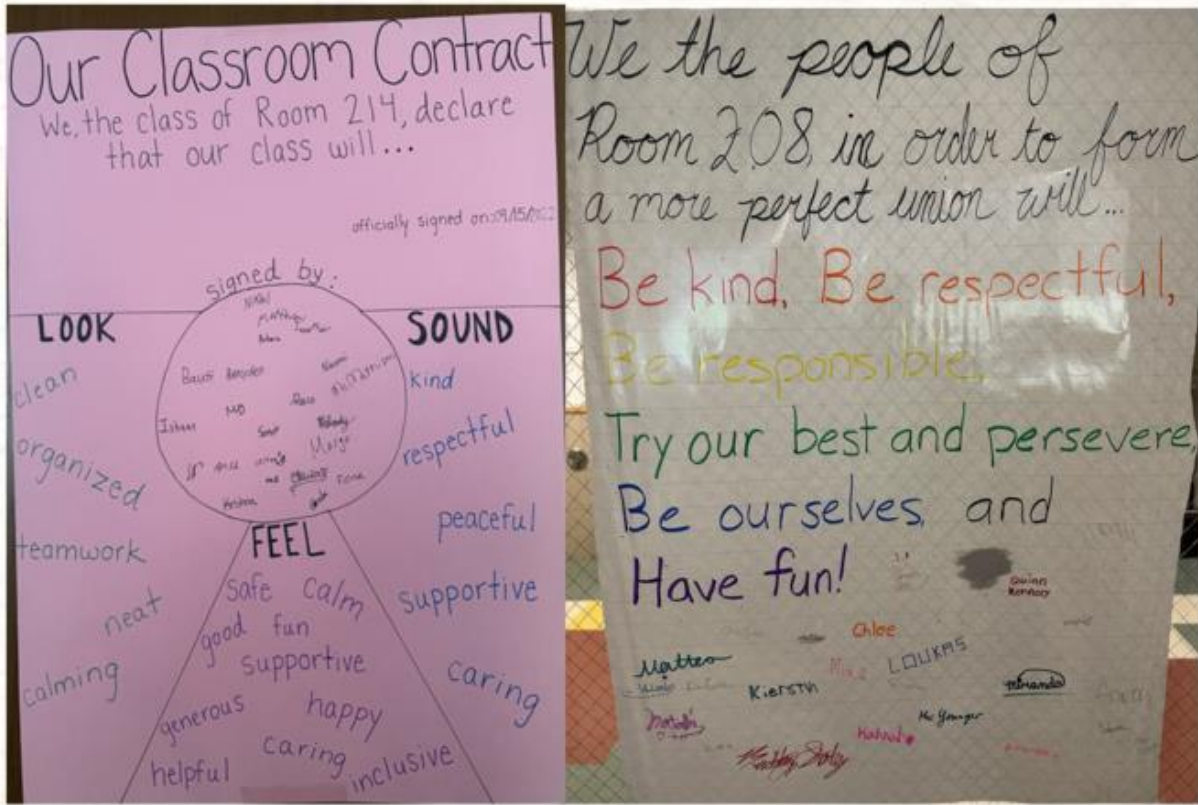 Our Classroom Contract
We, the class of Room 214, declare
that our class will...
officially signed on: 09/15/2022
signed by:
Nikhil
Ishaan
MD
Margo
Krishna
LOOK
clean
organized
teamwork
neat
calming
SOUND
kind
respectful
peaceful
supportive
caring
FEEL
safe calm
good fun
supportive
generous happy
caring
helpful inclusive
We the people of
Room 208, in order to form
a more perfect union will...
Be kind, Be respectful,
Be responsible,
Try our best and persevere,
Be ourselves, and
Have fun!
Quinn
Chloe
Matteo
LOUKAS
Kierstn
miranda
Ms. Younger